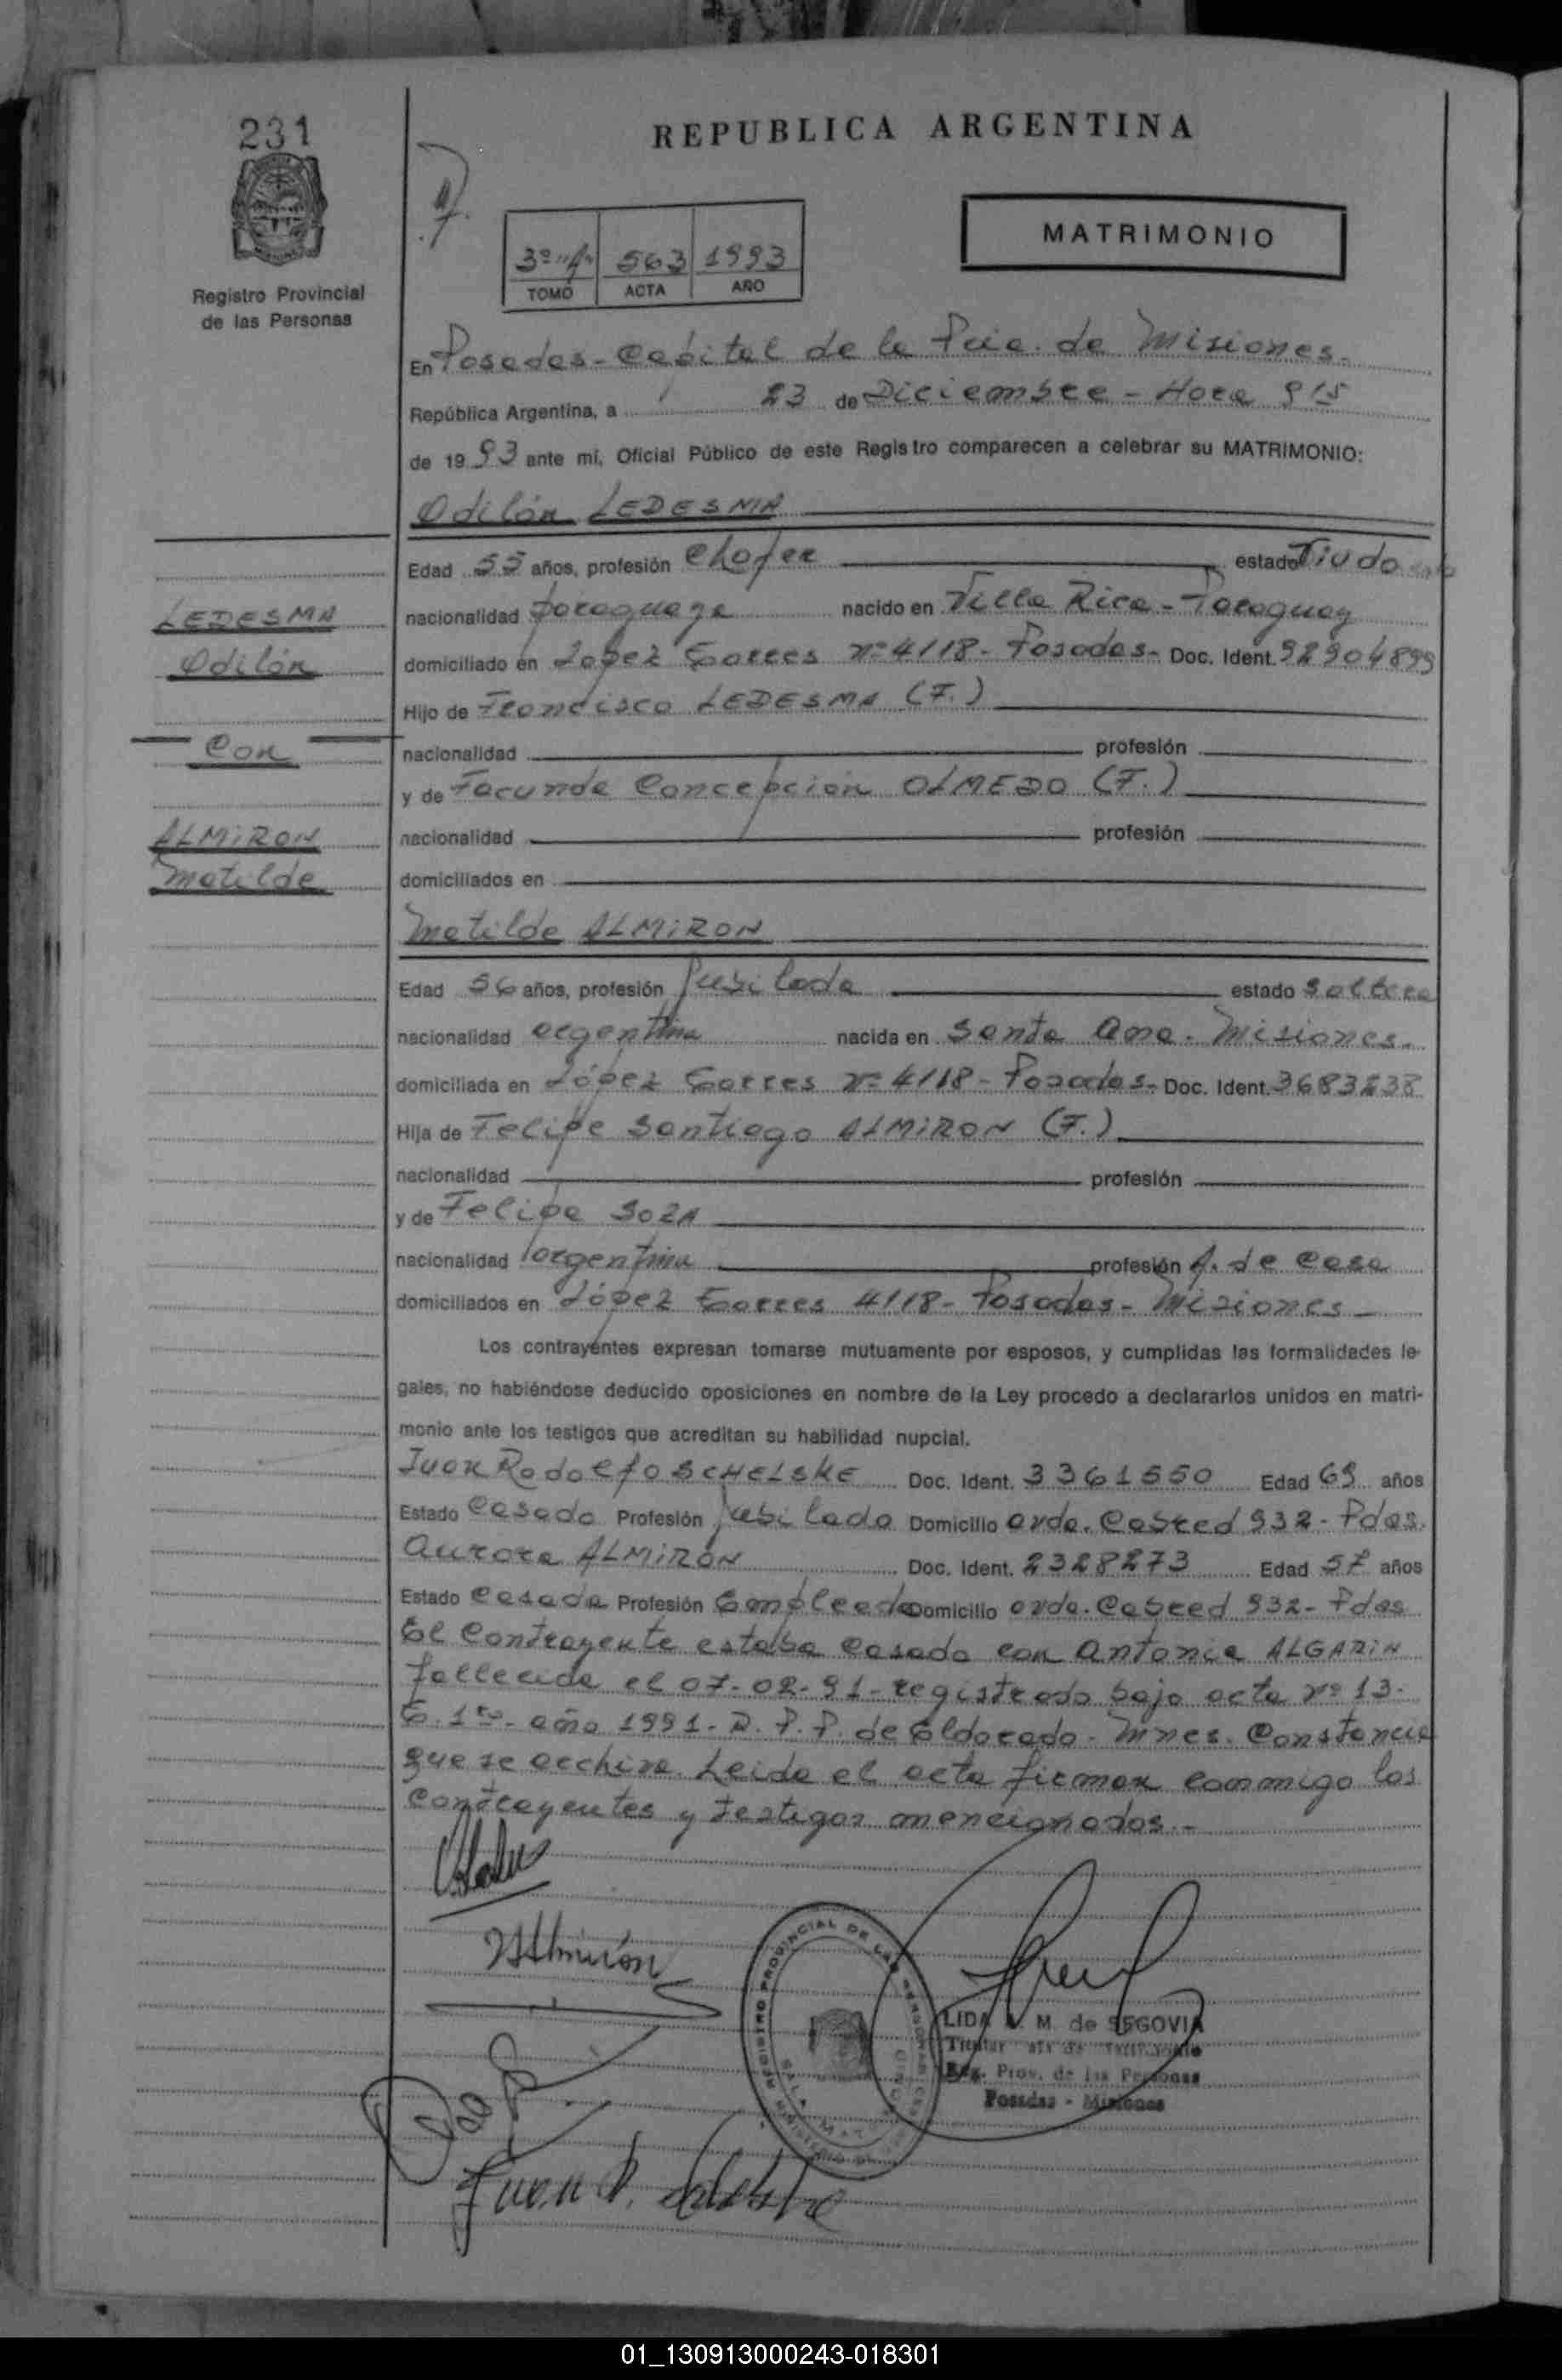 231
REPUBLICA ARGENTINA
MATRIMONIO
3º "A" 563 1993
TOMO ACTA AÑO
Registro Provincial
de las Personas
En Posadas - Capital de la Pcia. de Misiones.
República Argentina, a 23 de Diciembre - Hora 9 15
de 19 93 ante mí, Oficial Público de este Registro comparecen a celebrar su MATRIMONIO:
Odilón LEDESMA
Edad 55 años, profesión Chofer estado Viudo
LEDESMA
nacionalidad paraguaya nacido en Villa Rica - Paraguay
Odilón
domiciliado en Lopez Torres nº 4118 - Posadas - Doc. Ident. 92904899
Hijo de Francisco LEDESMA (F.)
Con
nacionalidad profesión
y de Facunda Concepción OLMEDO (F.)
ALMIRON
nacionalidad profesión
Matilde
domiciliados en
Matilde ALMIRON
Edad 56 años, profesión Jubilada estado Soltera
nacionalidad argentina nacida en Santa Ana - Misiones.
domiciliada en López Torres nº 4118 - Posadas - Doc. Ident. 3683238
Hija de Felipe Santiago ALMIRON (F.)
nacionalidad profesión
y de Felipa SOZA
nacionalidad argentina profesión A. de Casa
domiciliados en López Torres 4118 - Posadas - Misiones
Los contrayentes expresan tomarse mutuamente por esposos, y cumplidas las formalidades le-
gales, no habiéndose deducido oposiciones en nombre de la Ley procedo a declararlos unidos en matri-
monio ante los testigos que acreditan su habilidad nupcial.
Juan Rodolfo SCHELSKE Doc. Ident. 3361550 Edad 69 años
Estado Casado Profesión jubilado Domicilio avda. Cabred 932 - Pdas.
Aurora ALMIRÓN Doc. Ident. 2328273 Edad 57 años
Estado Casada Profesión Empleada Domicilio avda. Cabred 932 - Pdas
El Contrayente estaba Casado con Antonia ALGARIN
fallecida el 07-02-91 - registrado bajo acta nº 13.
T. 1ro - año 1991 - D. P. P. de Eldorado - Mnes. Constancia
que se archiva. Leida el acta firman conmigo los
Contrayentes y testigos mencionados.-
MAlmirón
REGISTRO PROVINCIAL DE LAS PERSONAS
LIDA M. de SEGOVIA
Titular
Reg. Prov. de las Personas
Posadas - Misiones
Juan R. Schelske
01_130913000243-018301